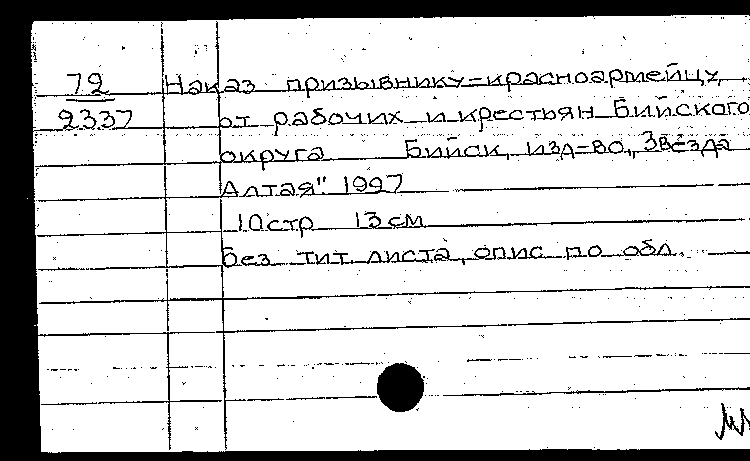 72 Наказ призывнику=красноармейцу
2337 от рабочих и крестьян Бийского
округа Бийск, изд=во „Звезда
Алтая". 1997
10стр 13см
без тит листа, опис по обл.